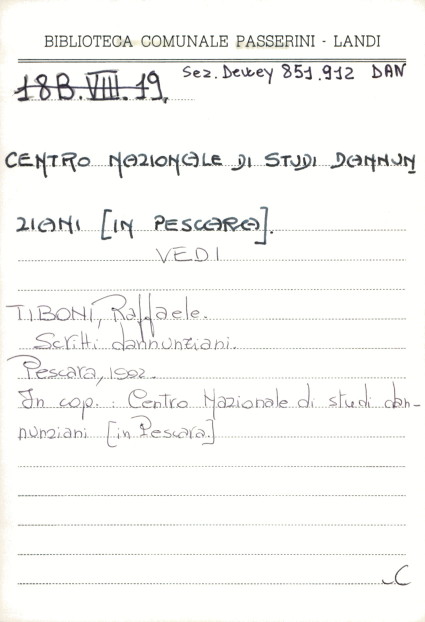 BIBLIOTECA COMUNALE PASSERINI - LANDI
Sez. Dewey 851.912 DAN
18B.VIII.19.
CENTRO NAZIONALE DI STUDI DANNUN
ZIANI [IN PESCARA].
VEDI
TIBONI, Raffaele.
Scritti dannunziani.
Pescara, 1992.
In cop. : Centro Nazionale di studi dan-
nunziani [in Pescara.]